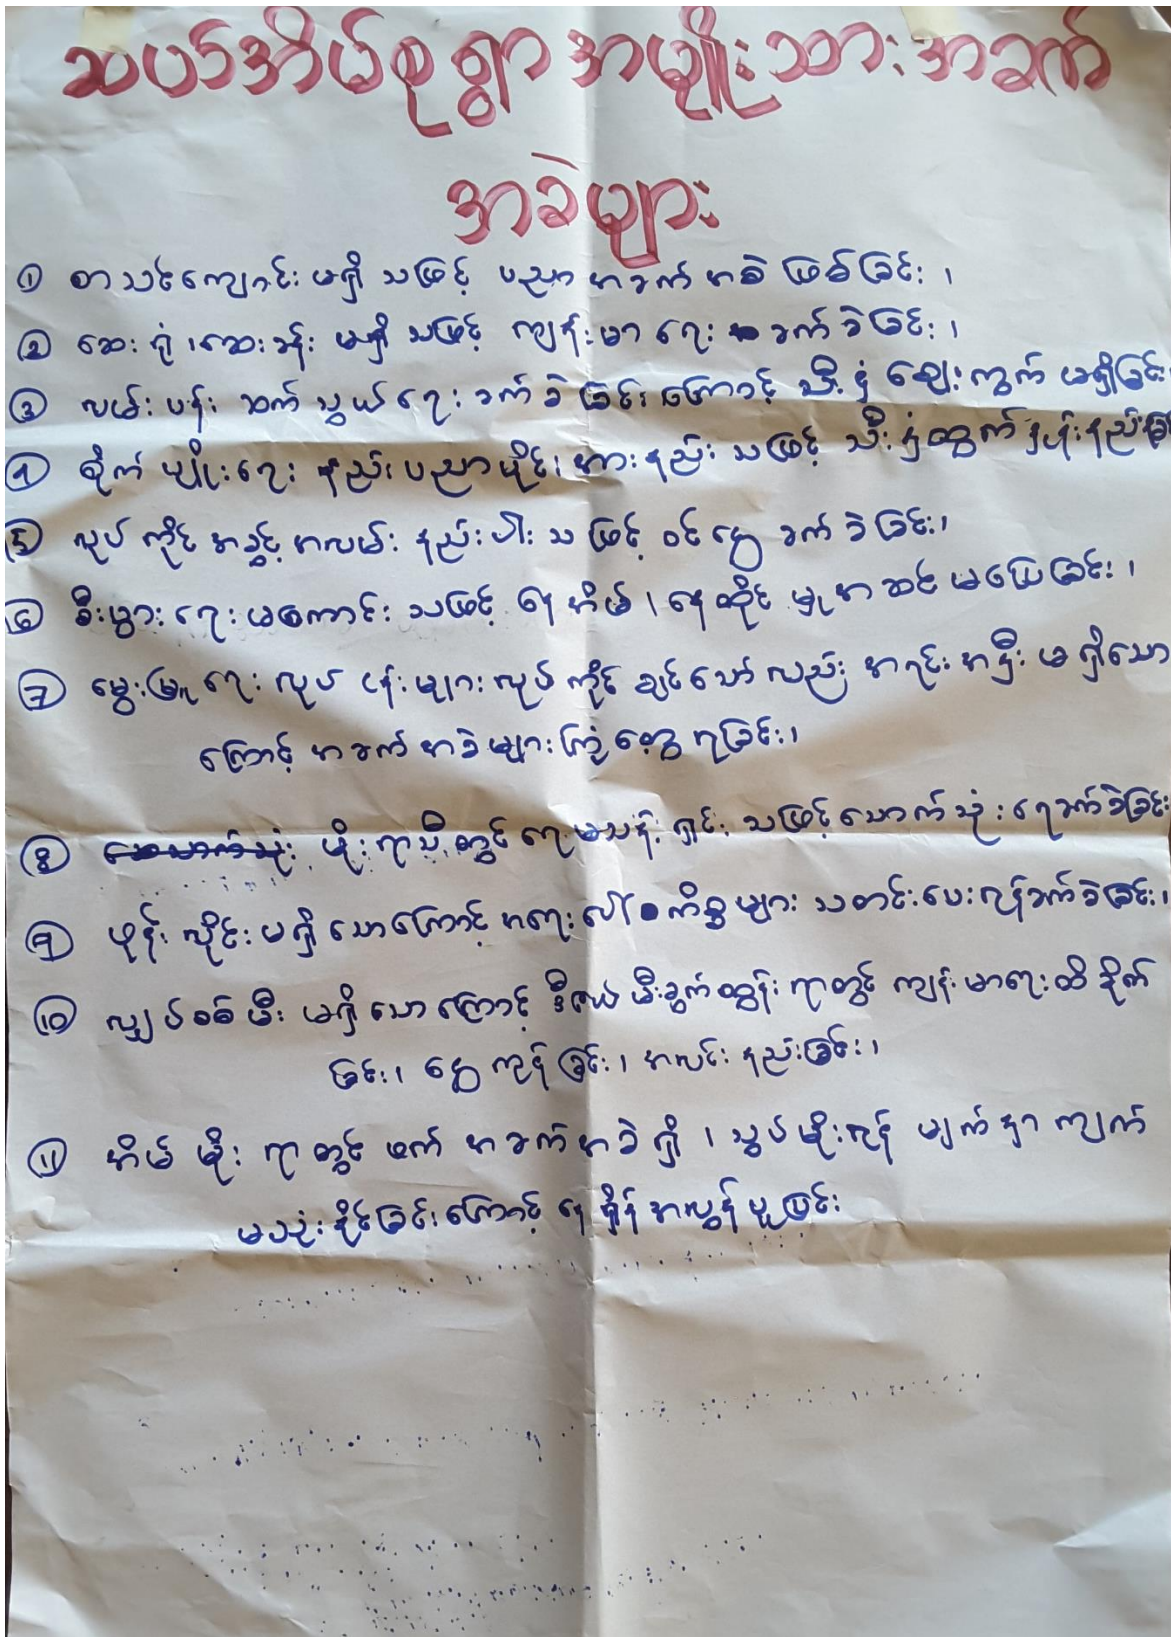 ဆယ်အိမ်စုရွာ အမျိုးသား အခက်
အခဲများ
① စာသင်ကျောင်း မရှိ သဖြင့် ပညာ အခက် အခဲ ဖြစ်ခြင်း ၊
② ဆေး ရုံ ၊ ဆေး ခန်း မရှိ သဖြင့် ကျန်းမာ ရေး ခက် ခဲ ခြင်း ၊
③ လမ်း ပန်း ဆက် သွယ် ရေး ခက် ခဲ ခြင်း ကြောင့် သီး နှံ ဈေး ကွက် မရှိခြင်း
④ စိုက် ပျိုး ရေး နည်း ပညာ ပိုင်း အား နည်း သဖြင့် သီး နှံထွက် နှုန်း နည်းခြင်း
⑤ လုပ် ကိုင် အခွင့် အလမ်း နည်းပါး သ ဖြင့် ဝင်ငွေ ခက် ခဲ ခြင်း ၊
⑥ စီးပွား ရေး မကောင်း သဖြင့် နေ အိမ် ၊ နေထိုင် မှု အဆင် မပြေ ခြင်း ၊
⑦ မွေးမြူ ရေး လုပ် ငန်း များ လုပ် ကိုင် ချင်သော် လည်း အရင်း အနှီး မ ရှိသော
ကြောင့် အခက် အခဲများ ကြုံ တွေ့ ရခြင်း ၊
⑧ မိုး ရာသီ တွင် ရေ မသန့် ရှင်း သဖြင့် သောက် သုံး ရေခက် ခဲခြင်း
⑨ ဖုန်း လိုင်း မရှိ သောကြောင့် အရေး ပေါ် ကိစ္စ များ သတင်း ပေး ရန်ခက် ခဲ ခြင်း ၊
⑩ လျှပ်စစ် မီး မရှိ သော ကြောင့် ဒီဇယ် မီးခွက် ထွန်း ရာတွင် ကျန်း မာရေး ထိ ခိုက်
ခြင်း ၊ ငွေ ကုန် ခြင်း ၊ အလင်း နည်းခြင်း ၊
⑪ အိမ် မိုး ရာ တွင် ဖက် အခက် အခဲ ရှိ ၊ သွပ် မိုး ရန် မျက် နှာ ကျက်
မသုံး နိုင်ခြင်း ကြောင့် နေ ရှိန် အလွန် ပူ ခြင်း